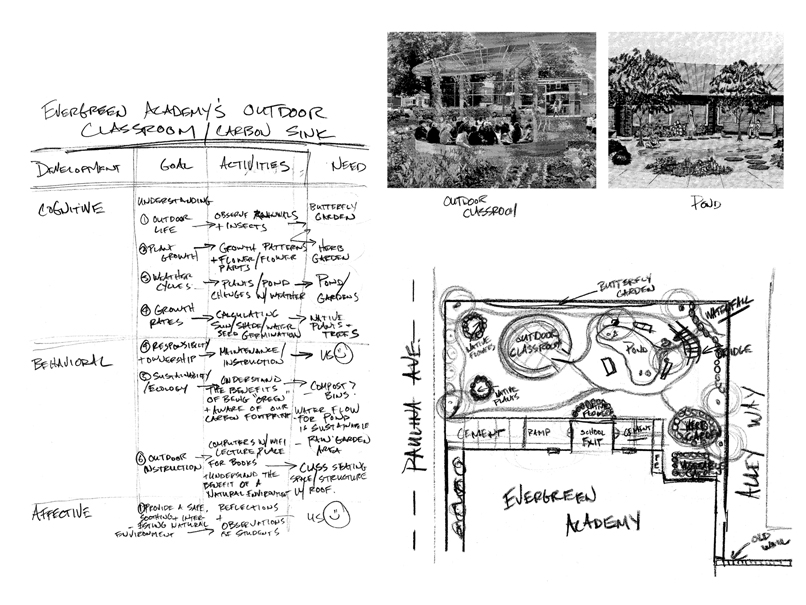 EVERGREEN ACADEMY'S OUTDOOR
CLASSROOM / CARBON SINK
DEVELOPMENT GOAL ACTIVITIES NEED
COGNITIVE
UNDERSTANDING
① OUTDOOR
LIFE
OBSERVE ANIMALS
+ INSECTS
BUTTERFLY
GARDEN
② PLANT
GROWTH
GROWTH PATTERNS
+ FLOWER/FLOWER
PARTS
HERB
GARDEN
③ WEATHER
CYCLES
PLANTS/POND
CHANGES W/ WEATHER
POND/
GARDENS
④ GROWTH
RATES
CALCULATING
SUN/SHADE/WATER
SEED GERMINATION
NATIVE
PLANTS +
TREES
BEHAVIORAL
RESPONSIBILITY
+ OWNERSHIP
MAINTENANCE/
INSTRUCTION
US
⑤ SUSTAINABILITY
/ECOLOGY
UNDERSTAND
THE BENEFITS
OF BEING "GREEN"
+ AWARE OF OUR
CARBON FOOTPRINT
COMPOST
BINS
WATER FLOW
FOR POND
IS SUSTAINABLE
- RAIN GARDEN
AREA
⑥ OUTDOOR
INSTRUCTION
COMPUTERS W/ WIFI
LECTURE, PLACE
FOR BOOKS
+ UNDERSTAND THE
BENEFIT OF A
NATURAL ENVIRONMENT
CLASS SEATING
SPACE/STRUCTURE
W/ ROOF.
AFFECTIVE
① PROVIDE A SAFE,
SOOTHING + INTER-
ESTING NATURAL
ENVIRONMENT
REFLECTIONS
+
OBSERVATIONS
OF STUDENTS
US
OUTDOOR
CLASSROOM
POND
BUTTERFLY
GARDEN
WATERFALL
PAULINA AVE.
NATIVE
OUTDOOR
CLASSROOM
POND
BRIDGE
NATIVE
PLANTS
FLOWERS
CEMENT
RAMP
SCHOOL
EXIT
CEMENT
HERB
GARDEN
ALLEY WAY
EVERGREEN
ACADEMY
OLD
WALL